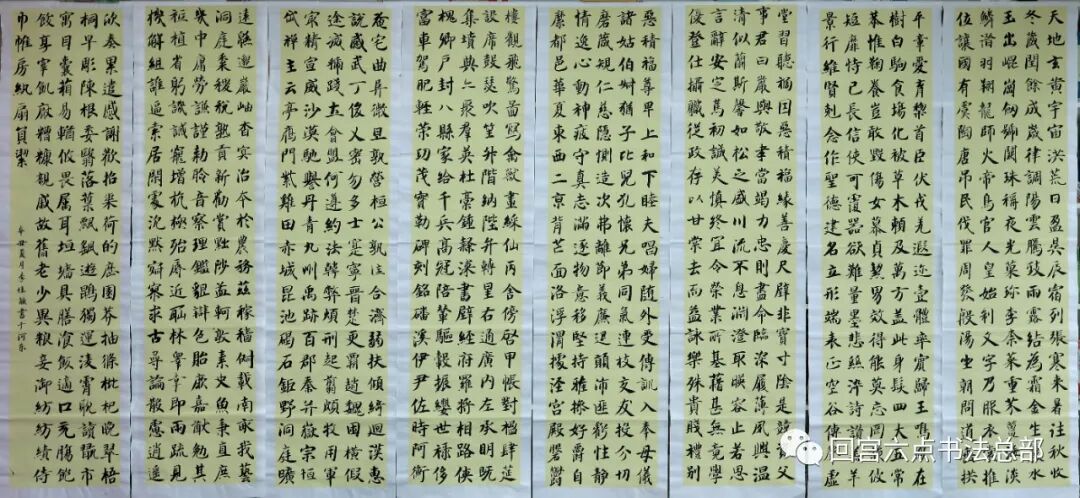 天地玄黄宇宙洪荒日盈昃辰宿列張寒来暑往秋收
冬藏閏餘成歲律吕調陽雲騰致雨露結為霜金生麗水
玉出崐崗劍號巨闕珠稱夜光菓珍李柰菜重芥薑海鹹河淡
鱗潛羽翔龍師火帝鳥官人皇始制文字乃服衣裳推
位讓國有虞陶唐弔民伐罪周發殷湯坐朝問道垂拱
平章愛育黎首臣伏戎羌遐迩壹體率賓歸王鳴鳳在
樹白駒食場化被草木頼及萬方盖此身髮四大五常
恭惟鞠養豈敢毁傷女慕貞絜男效得能莫忘罔談彼
短靡恃己長信使可覆器欲難量墨悲絲淬詩讚羔羊
景行維賢剋念作聖德建名立形端表正空谷傳聲虚
堂習聽禍因惡積福緣善慶尺辟非寶寸陰是競資父
事君曰嚴與敬孝當竭力忠則盡命臨深履薄夙興温
清似蘭斯馨如松之盛川流不息淵澄取暎容止若思
言辭安定篤初誠美慎終宜令榮業所基藉甚無竟學
優登仕攝職従政存以甘棠去而益詠樂殊貴賤禮别
惡積福尊卑上和下睦夫唱婦随外受傅訓入奉母儀
諸姑伯叔猶子比兒孔懷兄弟同氣連枝交友投分切
磨箴規仁慈隱惻造次弗離節義廉退顛沛匪虧性静
情逸心動神疲守真志滿逐物意移堅持雅操好爵自
縻都邑華夏東西二京背芒面洛浮渭據涇宫殿磐鬱
樓觀飛驚圖寫禽獸畫綵仙靈丙舍傍啓甲帳對楹肆筵
設席鼓瑟吹笙升階納陛弁轉星右通廣内左承明既
集墳典亦聚羣英杜稾鍾隸漆書壁經府羅將相路俠
槐卿户封八縣家給千兵高冠陪輦驅轂振纓世禄侈
富車駕肥軽策功茂實勒碑刻銘磻溪伊尹佐時阿衡
奄宅曲阜微旦孰營桓公匡合濟弱扶傾綺迴漢惠
説感武丁俊乂密勿多士寔寧晉楚更霸趙魏困横假
途滅虢踐土會盟何遵約法韓弊煩刑起翦頗牧用軍
最精宣威沙漠馳譽丹青九州禹跡百郡秦并嶽宗恒
岱禪主云亭雁門紫塞雞田赤城昆池碣石鉅野洞庭曠
遠緜邈巖岫杳冥治本於農務兹稼穡俶載南畝我藝
黍稷税熟貢新勸賞黜陟孟軻敦素史魚秉直庶
幾中庸勞謙謹勅聆音察理鑑貌辯色貽厥嘉猷勉其
祗植省躬譏誡寵增抗極殆辱近恥林皋幸即兩疏見
機解組誰逼索居閑處沉默寂寥求古尋論散慮逍遥
欣奏累遣感謝歡招渠荷的歷園莽抽條枇杷晚翠梧
桐早彫陳根委翳落葉飄飖遊鵾獨運凌霄耽讀翫市
寓目囊箱易輶攸畏属耳垣墻具膳飡飯適口充腸飽
飫享宰飢厭糟糠親戚故舊老少異粮妾御紡績侍
巾帷房紈扇員潔
书于河东
回宫六点书法总部